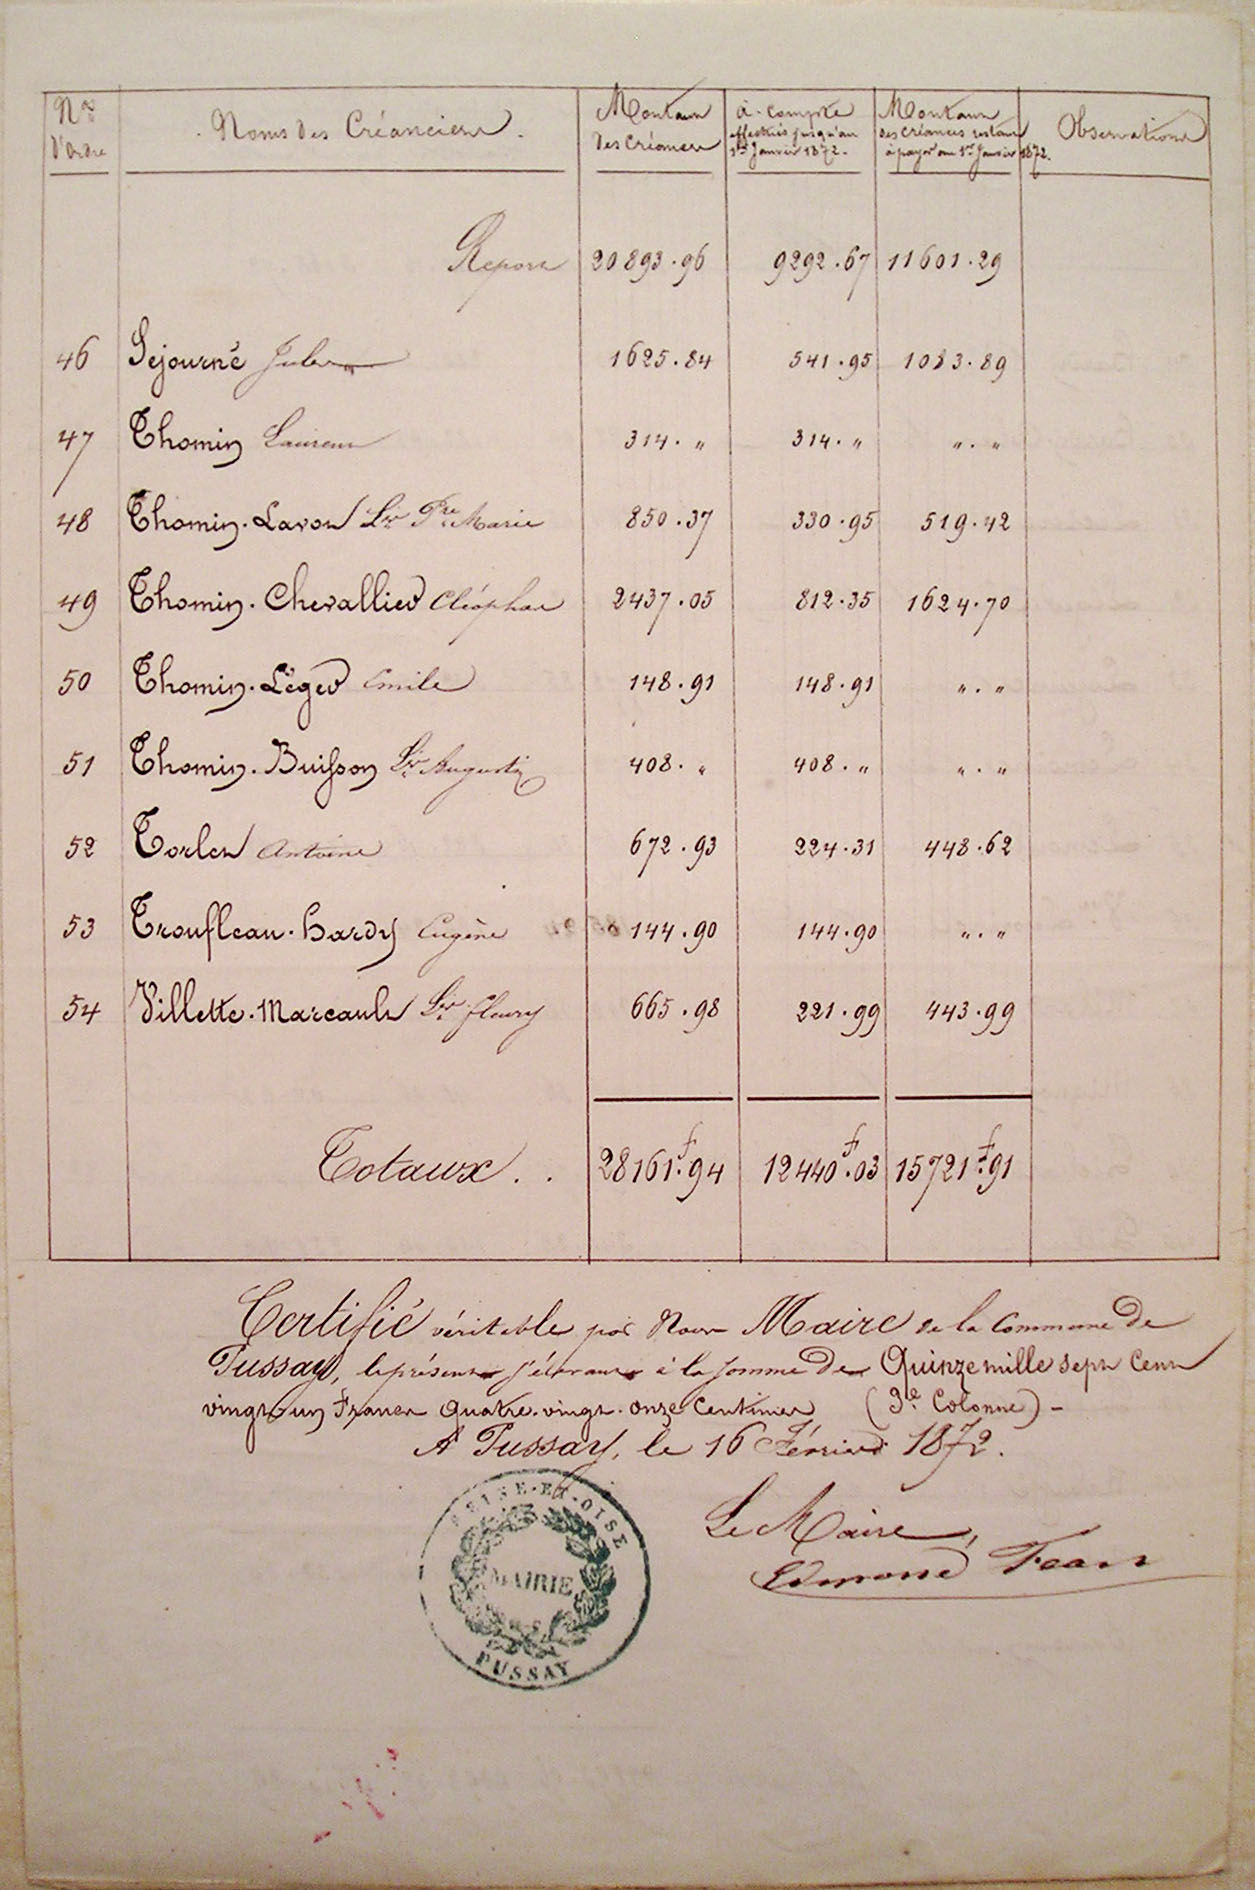 Nos d'Ordre | Noms des Créanciers. | Montant des Créances | à-compte effectués jusqu'au 1er Janvier 1872. | Montant des créances restant à payer au 1er Janvier 1872. | Observations
Report 20893.96 9292.67 11601.29
46 Sejourné Jules 1625.84 541.95 1083.89
47 Thomin Laurent 314. " 314. " " . "
48 Thomin-Lavot Lis Pre Marie 850.37 330.95 519.42
49 Thomin-Chevallier Cléophas 2437.05 812.35 1624.70
50 Thomin-Léger Emile 148.91 148.91 " . "
51 Thomin-Buisson Lis Augustin 408. " 408. " " . "
52 Torlet Antoine 672.93 224.31 448.62
53 Troufleau-hardy Eugène 144.90 144.90 " . "
54 Villette-Marcault Lis fleury 665.98 221.99 443.99
Totaux . . 28161f.94 12440f.03 15721f.91
Certifié véritable par Nous Maire de la Commune de
Pussay, le présent s'élevant à la somme de Quinze mille sept cent
vingt un francs quatre-vingt-onze centimes (3e Colonne) -
A Pussay, le 16 Février 1872.
Le Maire,
Edmond
SEINE-ET-OISE
MAIRIE
PUSSAY